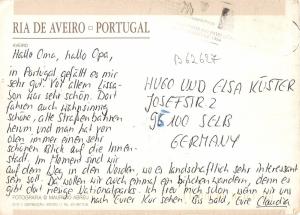 RIA DE AVEIRO - PORTUGAL
AVEIRO
D62627
Hallo Oma, hallo Opa,
in Portugal gefällt es mir
sehr gut. Vor allem Lissa-
bon war sehr schön. Dort
fahren auch wahnsinnig
schöne, alte Straßenbahnen
herum und man hat von
oben immer einen sehr
schönen Blick auf die Innen-
stadt. Im Moment sind wir
auf dem Weg in den Norden, wo es landschaftlich sehr interessant
sein soll. Da wollen wir auch einmal ein bißchen wandern, denn es
gibt dort riesige Nationalparks. Ich freu mich schon, wenn wir uns
nach Eurer Kur sehen. Bis bald, eure Claudia
HUGO UND ELSA KÜSTER
JOSEFSTR. 2
95100 SELB
GERMANY
FOTOGRAFIA © MAURÍCIO ABREU